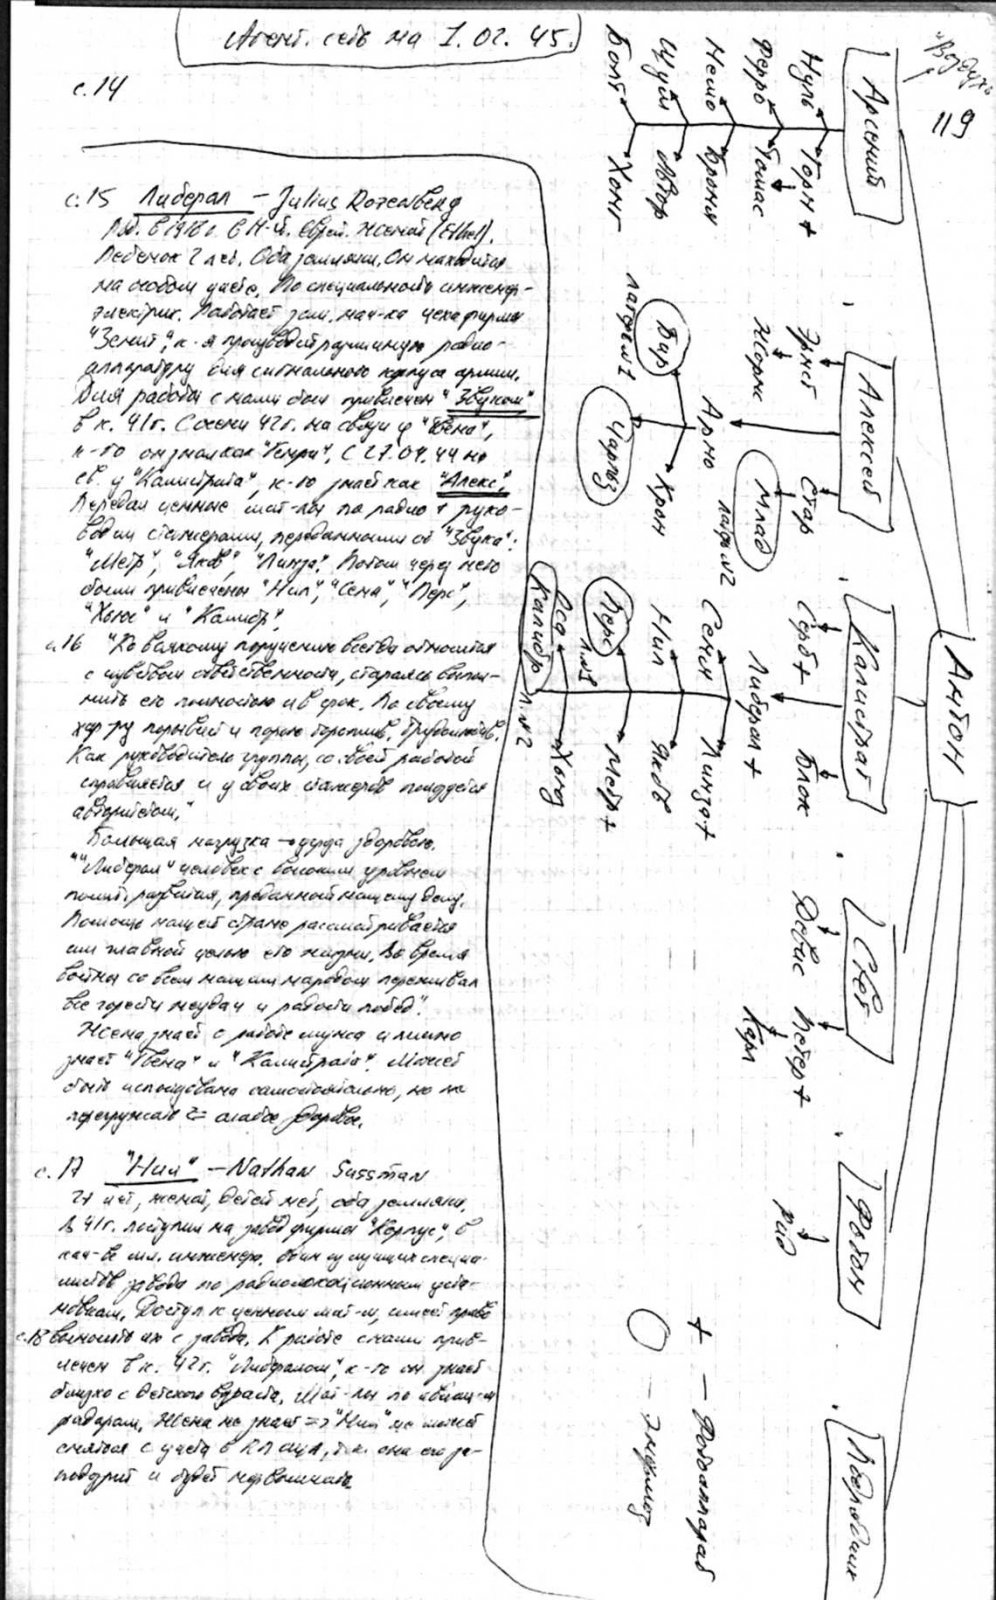 Агент. сеть на 1.02.45.
"Воздух"
119
с.14
с.15 Либерал — Julius Rozenberg
Род. в 1918 г. в Н-Й. Еврей. Женат (Ethel).
Ребенок 2 лет. Оба земляки. Он находится
на особом учете. По специальности инженер-
электрик. Работает зам. нач-ка цеха фирмы
"Зенит", к-я производит различную радио-
аппаратуру для сигнального корпуса армии.
Для работы с нами был привлечен "Звуком"
в к. 41г. С осени 42г. на связи у "Твена",
к-го он знал как "Генри", С 27.09.44 на
св. у "Калистрата", к-го знает как "Алекс".
Передал ценные мат-лы по радио + руко-
водил стажерами, переданными от "Звука":
"Метр", "Яков", "Линза". Потом через него
были привлечены "Нил", "Сеня", "Перс",
"Хьюс" и "Калибр".
с.16 "Ко всякому поручению всегда относится
с чувством ответственности, стараясь выпол-
нить его полностью и в срок. По своему
хар-ру порывист и порою тороплив.
Как руководитель группы, со своей работой
справляется и у своих стажеров пользуется
авторитетом."
Большая нагрузка → худа здоровью.
"Либерал" человек с высоким уровнем
полит. развития, преданный нашему делу.
Помощь нашей стране рассматривается
им главной целью его жизни. Во время
войны со всем нашим народом переживал
все горести неудач и радости побед".
Жена знает о работе мужа и лично
знает "Твена" и "Калистрата". Может
быть использована самостоятельно, но не
перегружать = слабое здоровье.
с.17 "Нил" — Nathan Sussman
27 лет, женат, детей нет, оба земляки.
В 41г. поступил на завод фирмы "Корпус", в
кач-ве мл. инженера. Один из лучших специа-
листов завода по радиолокационным уста-
новкам. Доступ к ценным мат-м, имеет право
с.18 выносить их с завода. К работе с нами прив-
лечен в к. 42г. "Либералом", к-го он знает
близко с детского возраста. Мат-лы по авиац-м
радарам. Жена не знает => "Нил" не может
сняться с учета в КП США, т.к. она его за-
подозрит и будет нервничать.
Антон
Арсений
Нуль
Горн +
Ферро
Томас
Немо
Броня
Цуил
Автор
Болт
Хонг
Алексей
Эрнст
Стар
Жорж
Млад
лаб. №2
Арно
Бир
лагерь 1
Крон
Чарльз
Калистрат
Серб +
Блок
Либерал +
Сеня
Линза +
Нил
Яков
Перс
Л. №1
Метр +
Оса
Калибр
Л. №2
Хьюз
Свет
Девис
Петер +
Карл
Фотон
Рид
+ — Фотоаппарат
— Энормоз